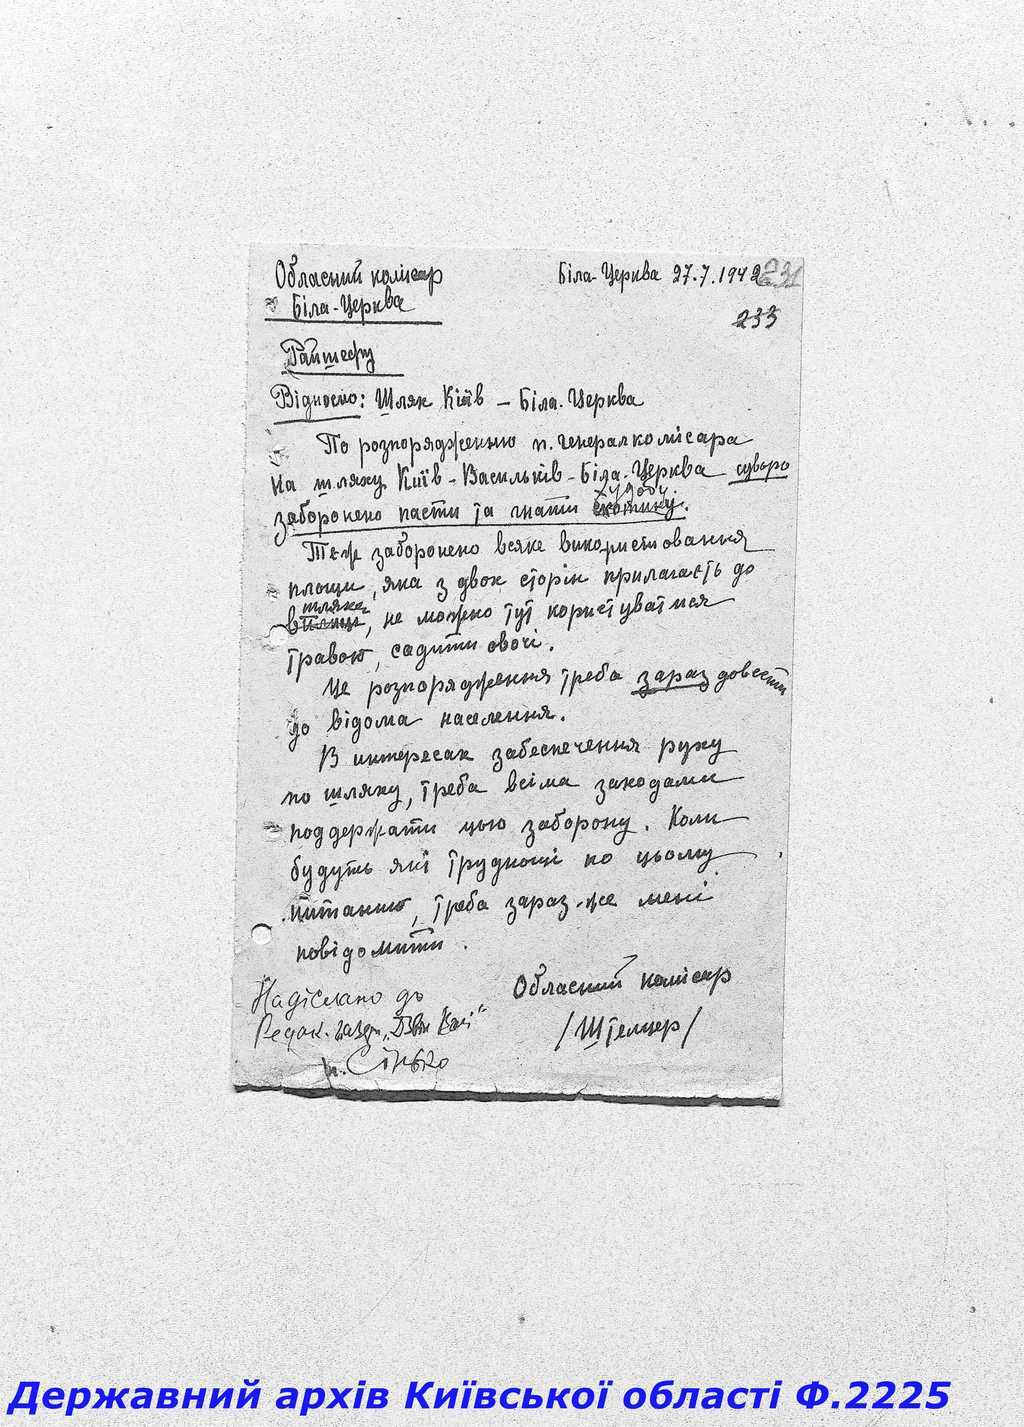 Обласний комісар
Біла-Церква 27.7.1942 231
Біла-Церква
233
Райшефу
Відносно: Шляк Київ – Біла-Церква
По розпорядженню п. генералкомісара
на шляху Київ - Васильків - Біла-Церква суворо
худобу
заборонено пасти та гнати скотину.
Теж заборонено всяке використовання
площи, яка з двох сторін прилагаєть до
шляха
в площи, не можно тут користуватися
травою, садити овочі.
Це розпорядження треба зараз довести
до відома населення.
В интересах забеспечення руху
по шляху, треба всіма заходами
поддержати цью заборону. Коли
будуть які труднощі по цьому
питанню, треба зараз-же мені
повідомити.
Обласний комісар
/Штельцер/
Надіслано до
Редак. газети
п. Сінько
Державний архів Київської області Ф.2225